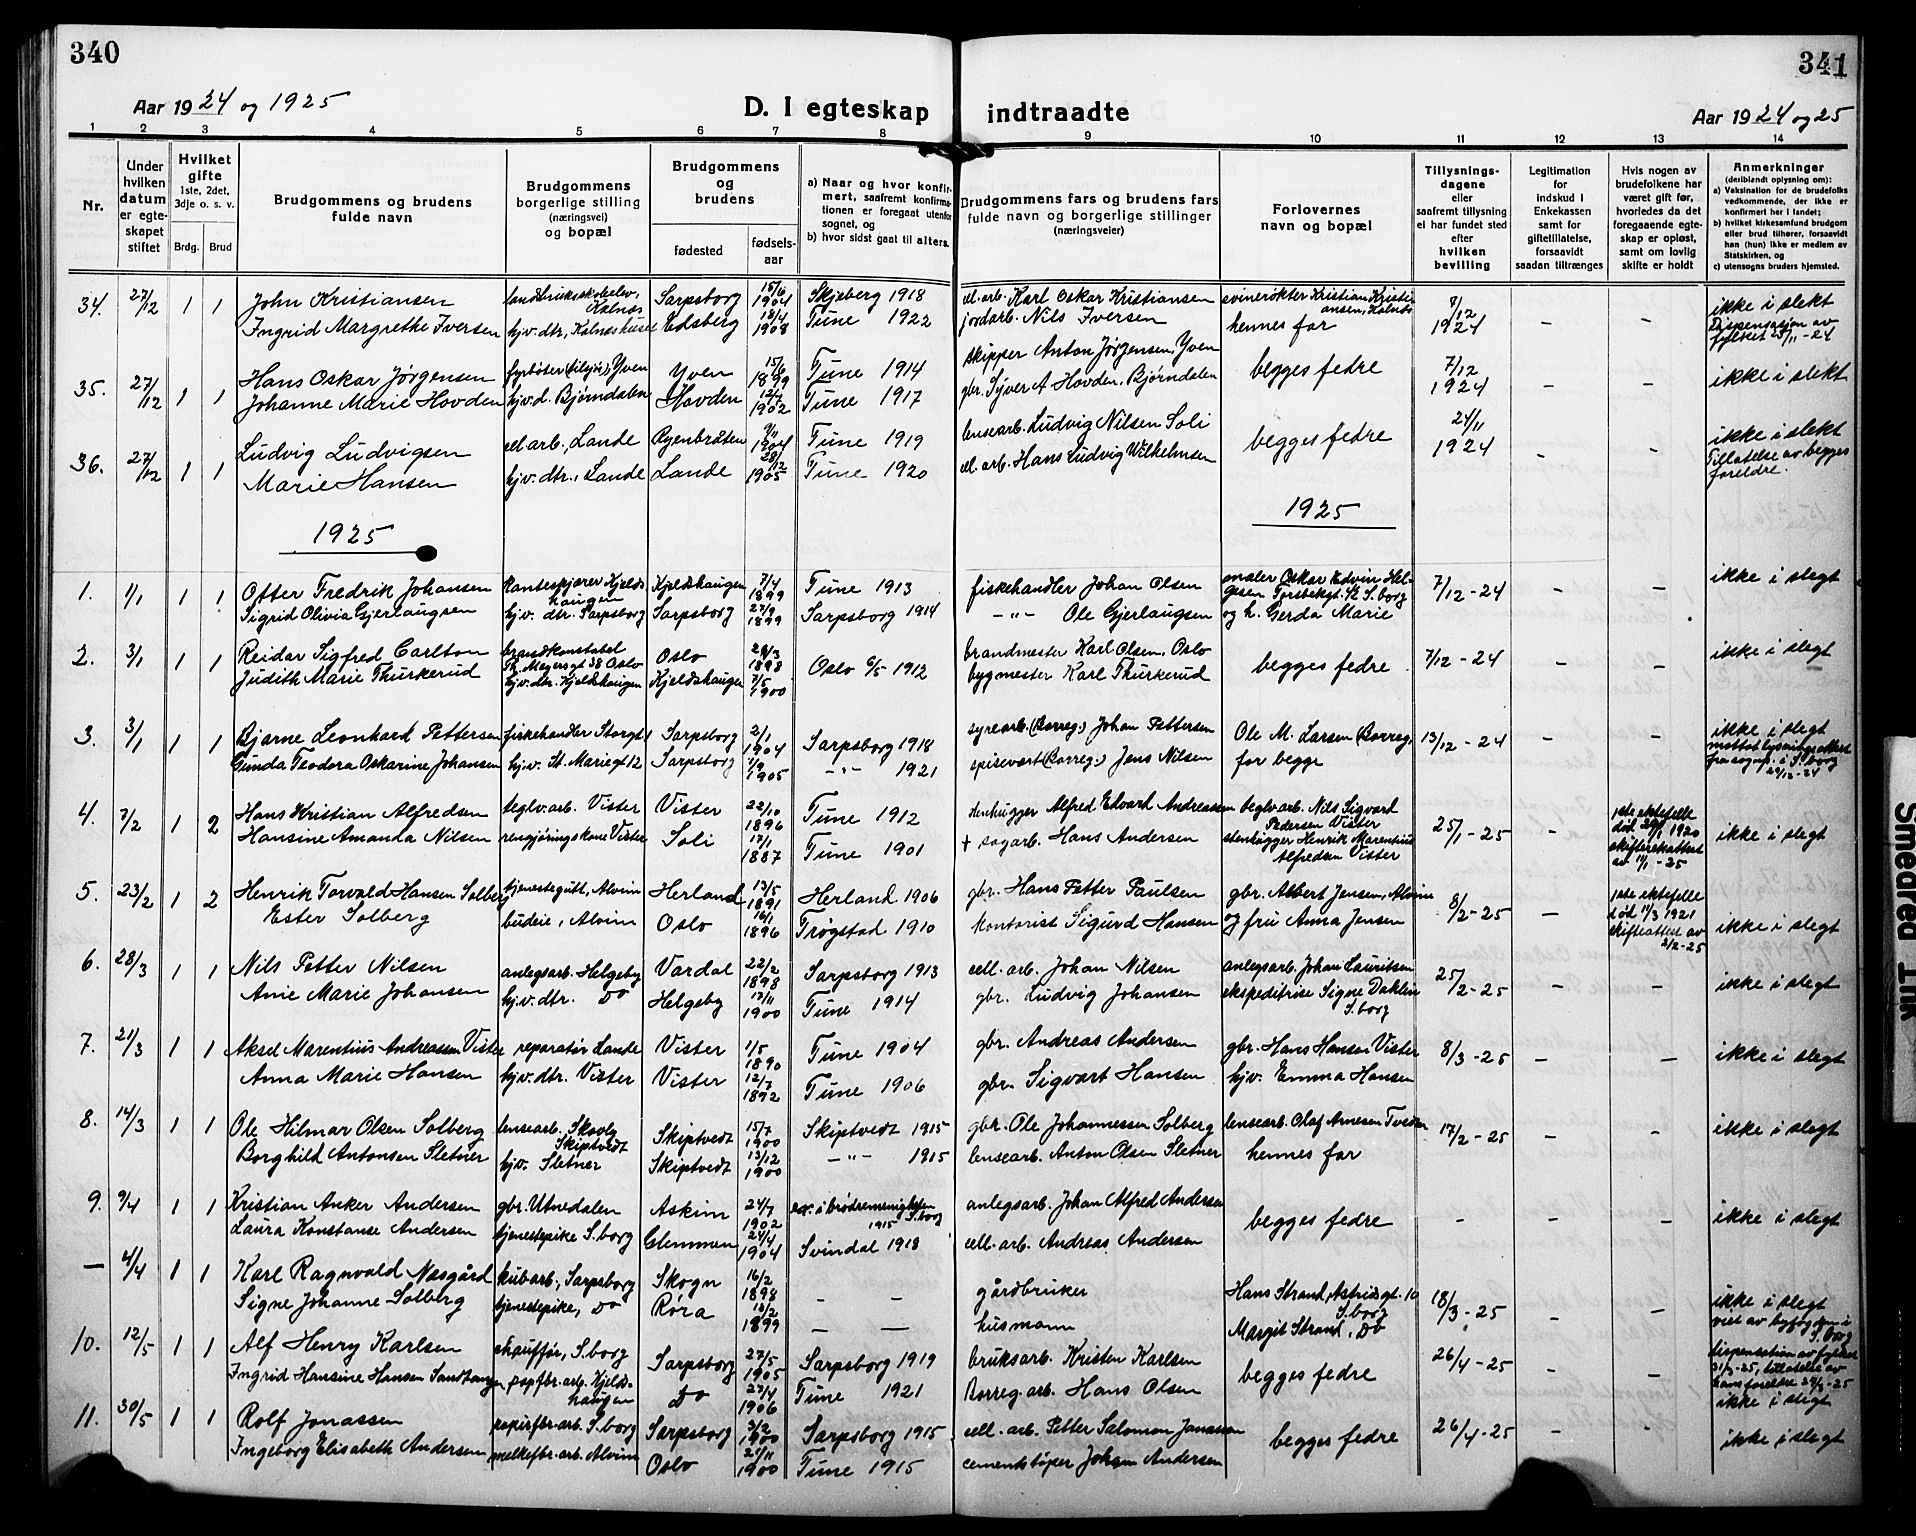 340
341
Aar 1924 og 1925
D. I egteskap indtraadte
Aar 1924 og 25
1 2 3 4 5 6 7 8 9 10 11 12 13 14
Nr.
Under hvilken datum er egteskapet stiftet
Hvilket gifte 1ste, 2det, 3dje o. s. v.
Brdg. Brud
Brudgommens og brudens fulde navn
Brudgommens borgerlige stilling (næringsvei) og bopæl
Brudgommens og brudens
fødested
fødselsaar
a) Naar og hvor konfirmert, saafremt konfirmationen er foregaat utenfor sognet, og
b) hvor sidst gaat til alters.
Brudgommens fars og brudens fars fulde navn og borgerlige stillinger (næringsveier)
Forlovernes navn og bopæl
Tillysningsdagene eller saafremt tillysning ei har fundet sted efter hvilken bevilling
Legitimation for indskud i Enkekassen samt for giftetillatelse, forsaavidt saadan tiltrænges
Hvis nogen av brudefolkene har været gift før, hvorledes da det foregaaende egteskap er opløst, samt om lovlig skifte er holdt
Anmerkninger (deriblandt oplysning om):
a) Vaksination for de brudefolks vedkommende, der ikke er konfirmert her i landet;
b) hvilket kirkesamfund brudgom eller brud tilhører, forsaavidt han (hun) ikke er medlem av Statskirken, og
c) utensogns bruders hjemsted.
34. 27/12 1 1 John Kristiansen landbruksskoleelev, Kalnes Sarpsborg 15/6 1904 Skjeberg 1918 el. arb. Karl Oskar Kristiansen svinerøkter Kristian Kristiansen, Kalnes 7/12 1924 – – ikke i slekt
Ingrid Margrethe Iversen hjv. dtr, Kalneshuset Edsberg 1908 Tune 1922 jordarb. Nils Iversen hennes far Dispensasjon av fylket 25/11-24
35. 27/12 1 1 Hans Oskar Jørgensen fyrbøter, Yven Yven 15/6 1899 Tune 1914 skipper Anton Jørgensen, Yven begges fedre 7/12 1924 – – ikke i slekt
Johanne Marie Hovden hjv.d. Bjørndalen Hovden 12/7 1902 Tune 1917 gbr. Syver A Hovden, Bjørndalen
36. 27/12 1 1 Ludvig Ludvigsen el. arb., Lande Ryenbråten 9/11 1904 Tune 1919 lensearb. Ludvig Nilsen Soli begges fedre 24/11 1924 – – ikke i slekt
Marie Hansen hjv. dtr., Lande Lande 28/12 1905 Tune 1920 el. arb. Hans Ludvig Wilhelmsen Tillatelse av begges foreldre.
1925
1925
1. 1/1 1 1 Otter Fredrik Johansen kanteskjærer Kjeldshaugen Kjeldshaugen 7/4 1899 Tune 1913 fiskehandler Johan Olsen maler Oskar Edvin Helgesen Torsbekgt. S.borg 7/12-24 – – ikke i slegt
Sigrid Olivia Gjerlaugsen hjv. dtr. Sarpsborg Sarpsborg 27/9 1899 Sarpsborg 1914 –"– Ole Gjerlaugsen og h. Gerda Marie
2. 3/1 1 1 Reidar Sigfred Carlton brandkonstabel Th. Meyersgt 38 Oslo Oslo 28/3 1898 Oslo 6/5 1912 brandmester Karl Olsen, Oslo begges fedre 7/12-24 – – ikke i slegt
Judith Marie Thurkerud hjv. dtr. Kjeldshaugen Kjeldshaugen 7/5 1900 bygmester Karl Thurkerud
3. 3/1 1 1 Bjarne Leonhard Pettersen fiskehandler Storgt 1 Sarpsborg 2/1 1904 Sarpsborg 1918 syrearb. (Borreg.) Johan Pettersen Ole M. Larsen (Borreg. 13/12-24 – – ikke i slegt
Gunda Teodora Oskarine Johansen hjv. St. Mariegt 12 Sarpsborg 1/9 1905 –"– 1921 spisevert (Borreg.) Jens Nilsen for begge mottat lysningsattest fra sogn. i S.borg 29/12-24
4. 7/2 1 2 Hans Kristian Alfredsen teglv. arb. Vister Vister 22/10 1896 Tune 1912 stenhugger Alfred Edvard Andreassen teglv arb. Nils Sigvard Pedersen Vister 25/1-25 – 1ste ektefelle død 29/1 1920 skifterettattest av 14/1-25 ikke i slegt
Hansine Amanda Nilsen rengjøringskone Vister Soli 12/1 1887 Tune 1901 + sagarb. Hans Andersen stenhugger Henrik Marentius Alfredsen Vister
5. 23/2 1 2 Henrik Torvald Hansen Solberg tjenestegutt, Alvim Herland 13/5 1891 Herland 1906 gbr. Hans Petter Paulsen gbr. Albert Jensen, Alvim 8/2-25 – 1ste ektefelle død 11/3 1921 skifteattest av 2/2-25 ikke i slegt
Ester Solberg budeie, Alvim Oslo 16/1 1896 Trøgstad 1910 kontorist Sigurd Hansen og fru Anna Jensen
6. 28/3 1 1 Nils Petter Nilsen anlegsarb. Helgeby Vardal 22/2 1898 Sarpsborg 1913 cell. arb. Johan Nilsen anlegsarb. Johan Lauritsen 25/2-25 – – ikke i slegt
Anie Marie Johansen hjv. dtr. Do Helgeby 17/11 1900 Tune 1914 gbr. Ludvig Johansen ekspeditrise Signe Dahlin S.borg
7. 21/3 1 1 Aksel Marentius Andreassen Vister reparatør Lande Vister 1/5 1890 Tune 1904 gbr. Andreas Andersen gbr. Hans Hansen Vister 8/3-25 – – ikke i slegt
Anna Marie Hansen hjv. dtr. Vister Vister 12/7 1892 Tune 1906 gbr. Sigvart Hansen hjv. Emma Hansen
8. 14/3 1 1 Ole Hilmar Olsen Solberg lensearb. Skovlg Skiptvedt Skiptvedt 15/7 1900 Skiptvedt 1915 gbr. Ole Johannessen Solberg lensearb. Olaf Arnesen Tveden 17/2-25 – – ikke i slegt
Borghild Antonsen Sletner hjv. Sletner Skiptvedt 13/12 1900 –"– 1915 lensearb. Anton Olsen Sletner hennes far
9. 9/4 1 1 Kristian Anker Andersen gbr. Utnedalen Askim 24/7 1902 i brødremenigheten 1915 S.borg anlegsarb. Johan Alfred Andersen begges fedre – – – ikke i slegt
Laura Konstanse Andersen tjenestepike S.borg Glemmen 24/4 1904 Svindal 1918 cell. arb. Andreas Andersen
— 4/4 1 1 Karl Ragnvald Næsgård kubarb., Sarpsborg Skogn 16/2 1898 – – gårdbruker Hans Strand, Astridsgt. 10 S.borg 18/3-25 – – ikke i slegt
Signe Johanne Solberg tjenestepike, Do Røra 13/2 1899 – – husmann Margit Strand, Do viet av byfogden i S.borg
10. 12/5 1 1 Alf Henry Karlsen chauffør, S.borg Sarpsborg 27/5 1905 Sarpsborg 1919 bruksarb. Kristen Karlsen begges fedre 26/4-25 – – dispensation av fylket 31/3-25, tillatelse av hans foreldre 29/3-25
Ingrid Hansine Hansen Sandtangen papfbr. arb. Kjeldshaugen Do 27/4 1906 Tune 1921 Borreg. arb. Hans Olsen ikke i slegt
11. 30/5 1 1 Rolf Jonassen papirfbr. arb. S.borg Sarpsborg 3/2 1900 Sarpsborg 1915 cell. arb. Petter Salomon Jonassen begges fedre 26/4-25 – – ikke i slegt
Ingeborg Elisabeth Andersen melkefbr. arb. Alvim Oslo 21/11 1900 Tune 1915 cementstøper Johan Andersen
Smeared Ink